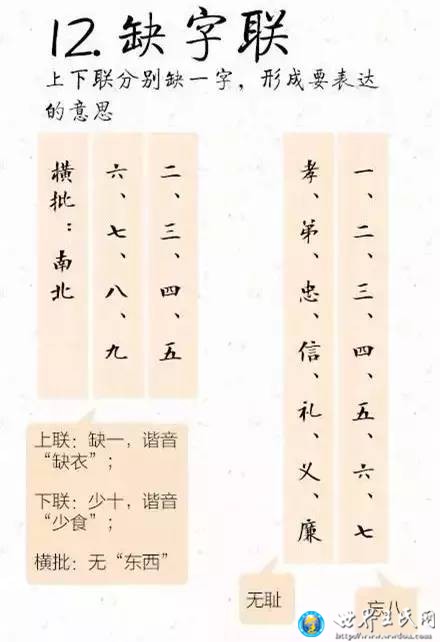 12.缺字联
上下联分别缺一字，形成要表达
的意思
二、三、四、五
六、七、八、九
横批：南北
上联：缺一，谐音
“缺衣”；
下联：少十，谐音
“少食”；
横批：无“东西”
一、二、三、四、五、六、七
孝、弟、忠、信、礼、义、廉
无耻
忘八
世界王氏网
http://www.wwdou.com